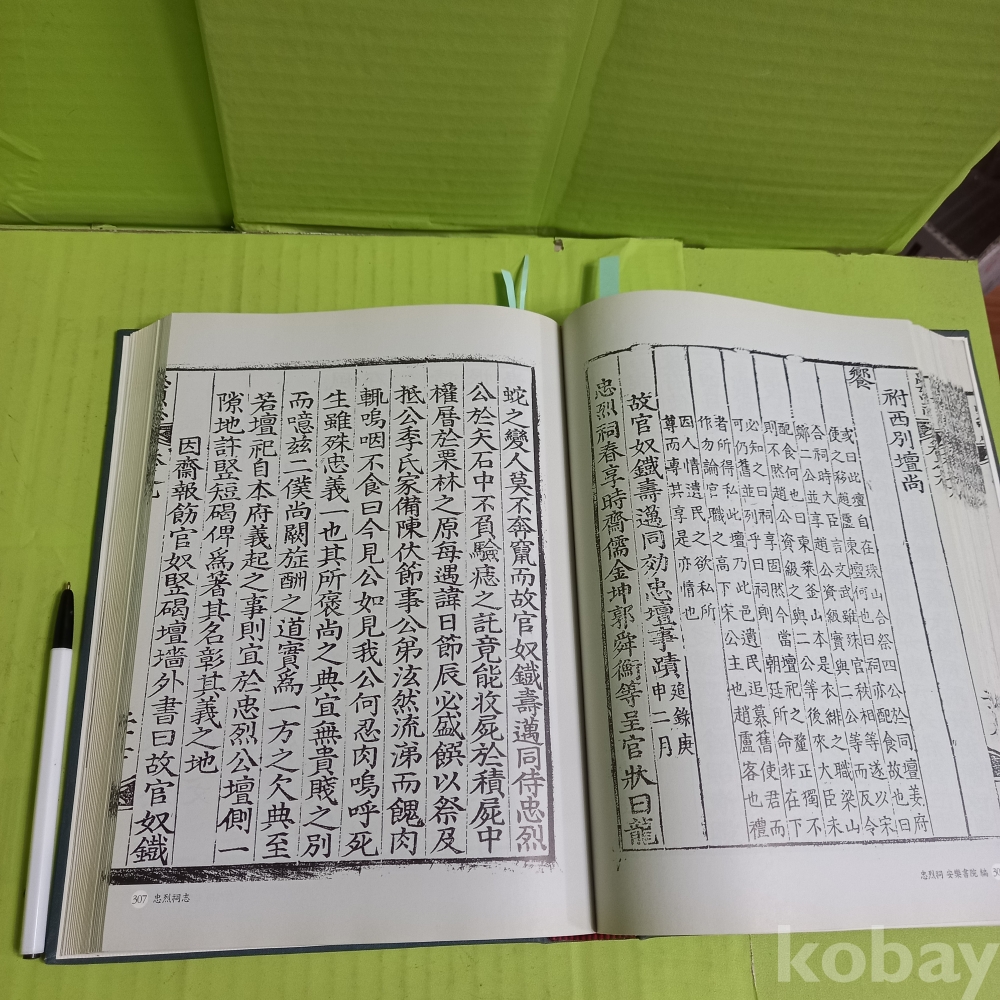 祔西別壇尚
饗
或曰此壇自在珠山合祭四公於同壇姜府
使之移趙盧東壇何也曰祠亦配食故也曰
合祠時大臣言文武雖殊官秩相等遂以宋
鄭二公並享趙公資級實與二公等而反令
配食何也曰東萊釜山本是衣緋之職梁山
則不然趙公資級之與二公等後來大臣未
必知之曰祠享固然今當壇祀之釐正獨不
可仍舊並列乎曰祠則朝廷所命非在下
者所得私此壇乃此邑遺民追慕舊使君而
作勿論官職之高下宋公主也趙盧客也禮
因人情遺民之欲私所
尊而專其享是亦情也
故官奴鐵壽邁同効忠壇事蹟 追錄庚申二月
忠烈祠春享時齋儒金坤郭舜衡等呈官狀曰龍
忠烈祠 安樂書院 編
蛇之變人莫不奔竄而故官奴鐵壽邁同侍忠烈
公於矢石中不負驗痣之託竟能收屍於積屍中
權厝於栗林之原每遇諱日節辰必盛饌以祭及
抵公季氏家備陳伏節事公弟泫然流涕而餽肉
輒嗚咽不食曰今見公如見我公何忍肉嗚呼死
生雖殊忠義一也其所褒尚之典宜無貴賤之別
而噫玆二僕尚闕旌酬之道實爲一方之欠典至
若壇祀自本府義起之事則宜於忠烈公壇側一
隙地許竪短碣俾爲著其名彰其義之地
因齋報飭官奴竪碣壇墻外書曰故官奴鐵
307 忠烈祠志
kobay